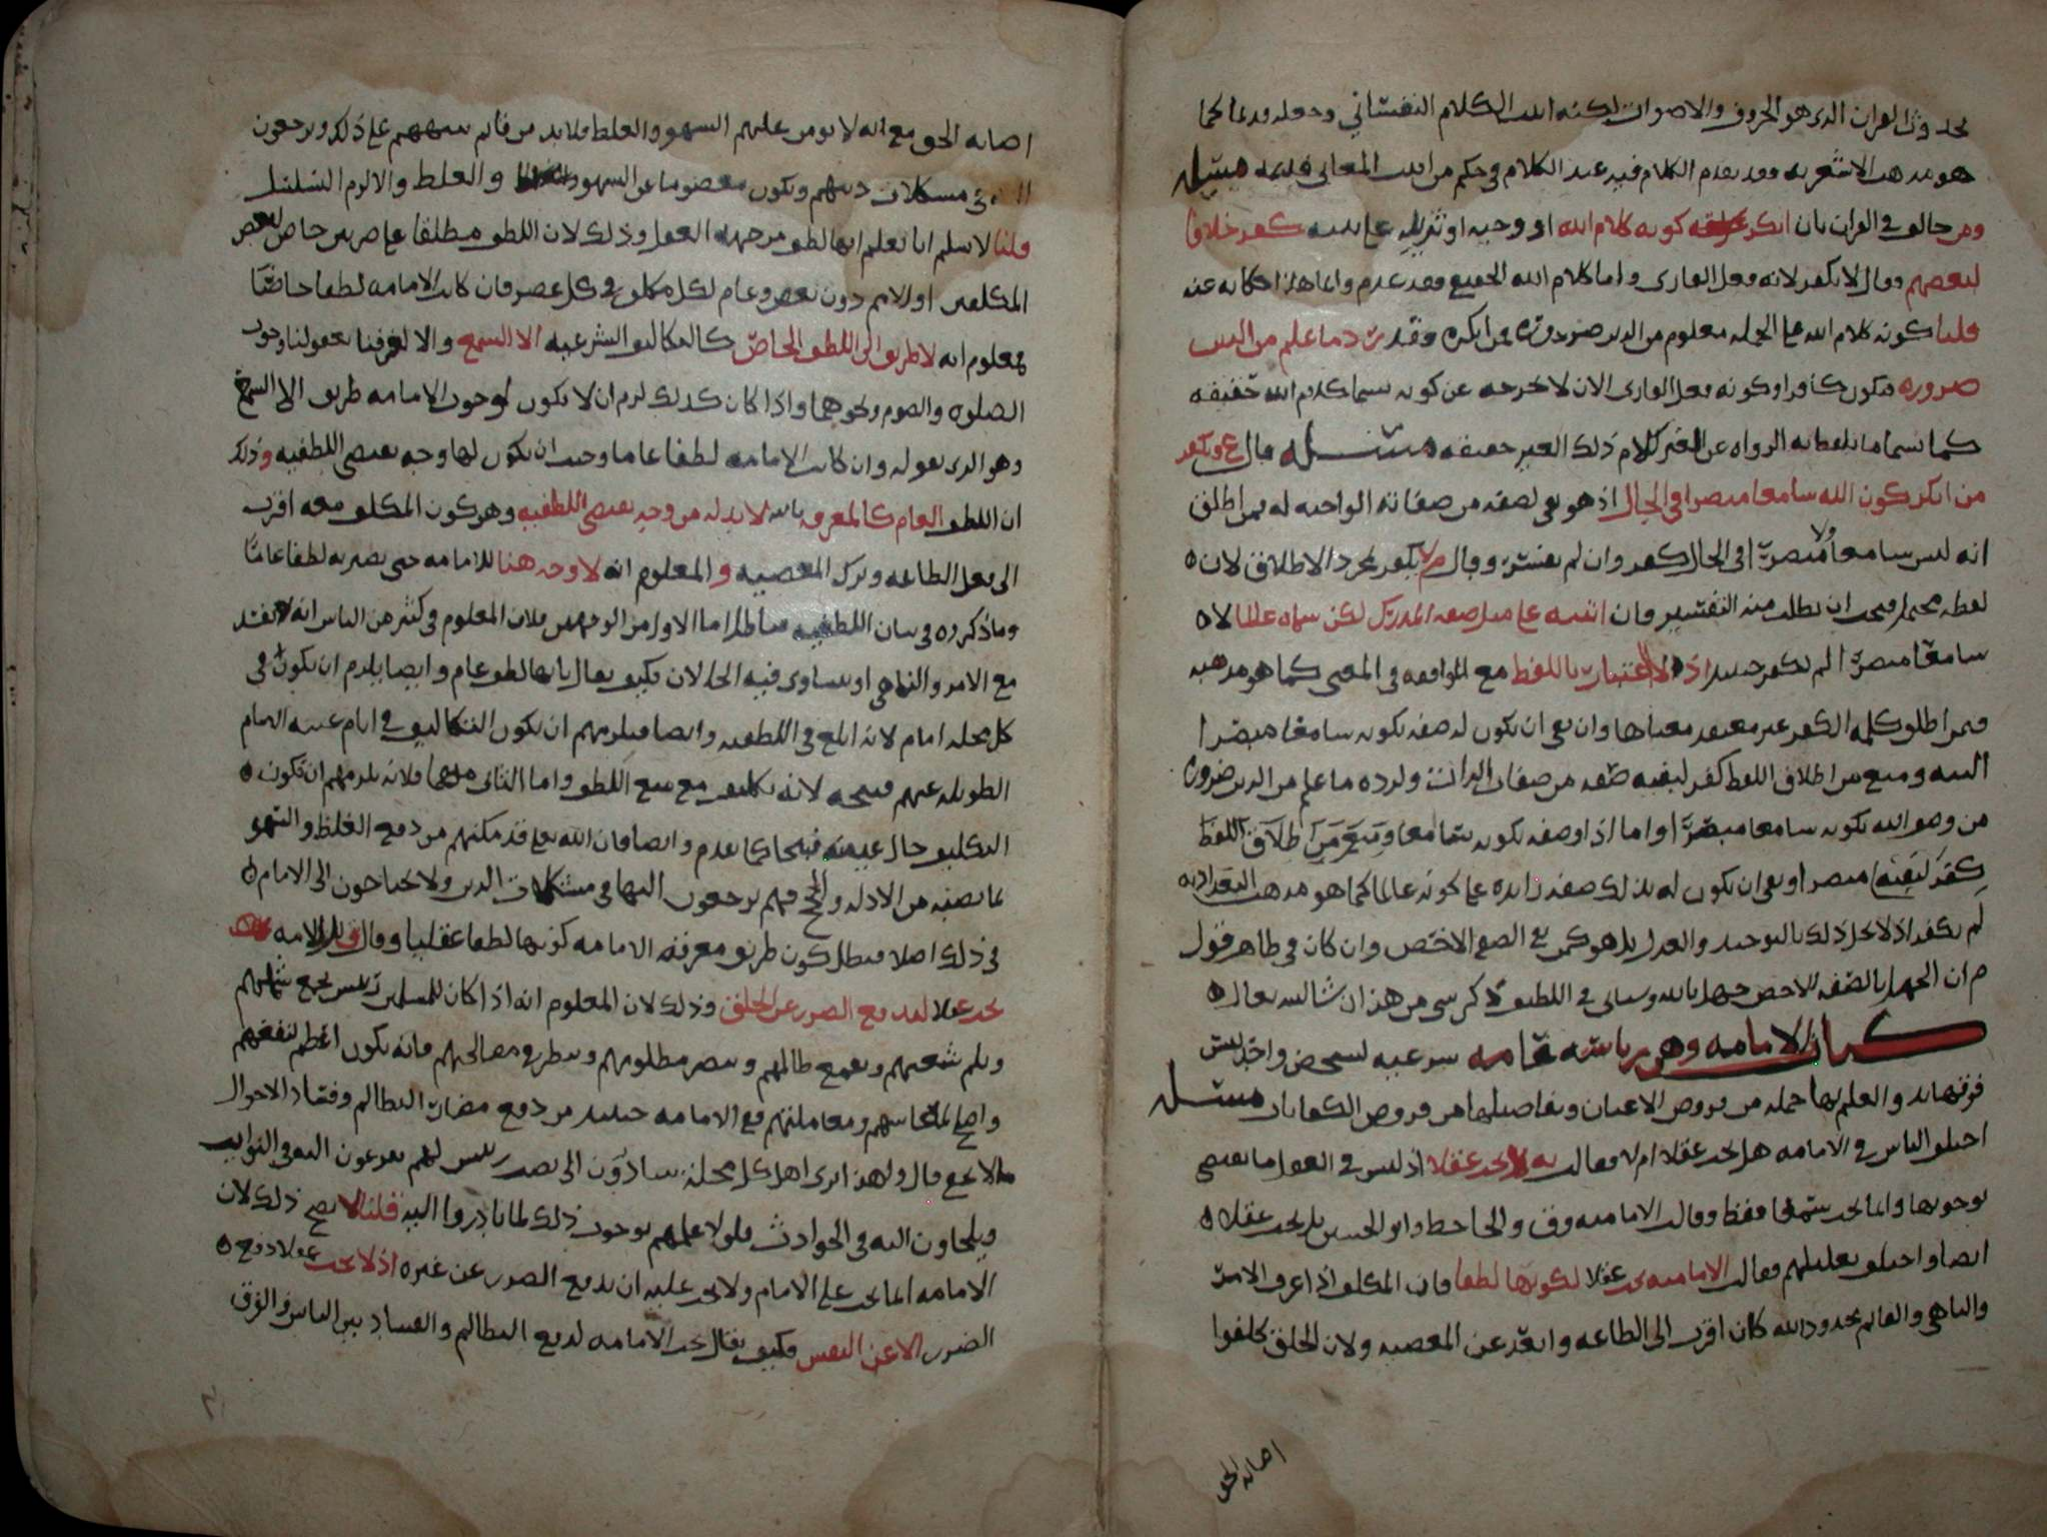 بحدوث القران الذي هو الحروف والاصوات لكنه اثبت الكلام النفساني وجعله قديما كما
هو مذهب الاشعريه وقد تقدم الكلام فيه عند الكلام في حكم من اثبت المعاني قديمه مسئله
ومن خالف في القران بان انكر كونه كلام الله او وحيه او تنزيله على نبيه كفر خلافا
لبعضهم وقال لا يكفر لانه فعل القارى واما كلام الله الحقيقي فقد عدم وانما هذا حكايه عنه
قلنا كونه كلام الله على الجمله معلوم من الدين ضروره فمن انكره فقد رد ما علم من الدين
ضروره فيكون كافرا وكونه فعل القارى الان لا يخرجه عن كونه يسما كلام الله حقيقه
كما يسما ما يلفظ به الرواه عن الغير كلام ذلك الغير حقيقه مسئله قال ع ويكفر
من انكر كون الله سامعا مبصرا في الحال اذ هو نفي لصفه من صفاته الواجبه له فمن اطلق
انه ليس سامعا ولا مبصرا في الحال كفر وان لم يفسر وقال م لا يكفر بمجرد الاطلاق لان
لفظه محتمل فيجب ان يطلب منه التفسير فان اثبته على مثل صفه المدرك لكن سماه عالما لا
سامعا مبصرا لم يكفر حينئذ اذ لا اعتبار باللفظ مع الموافقه في المعنى كما هو مذهبه
فيمن اطلق كلمه الكفر غير معتقد معناها وان نفى ان يكون له صفه بكونه سامعا مبصرا
البته ومنع من اطلاق اللفظ كفر لنفيه صفه من صفات الذات ولرده ما علم من الدين ضروره
من وصف الله بكونه سامعا مبصرا واما اذا وصفه بكونه سامعا ومنع من اطلاق اللفظ
كفر لنفيه مبصرا ونفى ان يكون له بذلك صفه زايده على كونه عالما كما هو مذهب البغداديه
لم يكفر اذ لا يخل ذلك بالتوحيد والعدل بل هو كمن نفى الصفه الاخص وان كان في ظاهر قول
م ان الجهل بالصفه الاخص جهل بالله وسياتي في اللطيف ذكر شي من هذا ان شا الله تعالى
كتاب الامامه وهي رياسه عامه شرعيه لشخص واحد ليس
فوقها يد والعلم بها جمله من فروض الاعيان وتفاصيلها من فروض الكفايات مسئله
اختلف الناس في الامامه هل تجب عقلا ام لا فقالت يه لا تجب عقلا اذ ليس في العقل ما يقتضي
وجوبها وانما تجب سمعا فقط وقالت الاماميه وق والجاحظ وابو الحسين بل تجب عقلا
ايضا واختلف تعليلهم فقالت الاماميه تجب عقلا لكونها لطفا فان المكلف اذا عرف الامر
والناهي والقائم بحدود الله كان اقرب الى الطاعه وابعد عن المعصيه ولان الخلق كلفوا
اصابه الحق
اصابه الحق مع انه لا يومن عليهم السهو والغلط فلا بد من قائم ينبههم على ذلك ويرجعون
في مشكلات دينهم ويكون معصوما عن السهو والغلط والا لزم التسلسل
قلنا لا نسلم انا نعلم انها لطف من جهه العقل وذلك لان اللطف مطلقا على ضربين خاص لبعض
المكلفين او الامم دون بعض وعام لكل مكلف في كل عصر فان كانت الامامه لطفا خاصا
فمعلوم انه لا طريق الى اللطف الخاص كالتكاليف الشرعيه الا السمع والا لعرفنا بعقولنا وجوب
الصلوه والصوم ونحوهما واذا كان كذلك لزم ان لا يكون لوجوب الامامه طريق الا السمع
وهو الذي نقوله وان كانت الامامه لطفا عاما وجب ان يكون لها وجه يقتضي اللطفيه وذلك
ان اللطف العام كالمعرفه بالله لا بد له من وجه يقتضي اللطفيه وهو كون المكلف معه اقرب
الى فعل الطاعه وترك المعصيه والمعلوم انه لا وجه هنا للامامه حتى يصير به لطفا عاما
وما ذكروه في بيان اللطفيه فباطل اما الاول من الوجهين فلان المعلوم في كثير من الناس انه لا يفسد
مع الامر والناهي او يتساوى فيه الحالان فكيف يقال بانها لطف عام وايضا يلزم ان يكون في
كل محله امام لانه ابلغ في اللطفيه وايضا فيلزمهم ان يكون التكاليف في ايام غيبه الامام
الطويله عنهم قبيحه لانه تكليف مع منع اللطف واما الثاني منهما فلانه يلزمهم ان يكون
التكليف حال غيبته قبيحا كما تقدم وايضا فان الله تعالى قد مكنهم من دفع الغلط والسهو
بما نصبه من الادله والحجج فهم يرجعون اليها في مشكلات الدين ولا يحتاجون الى الامام
في ذلك اصلا فبطل كون طريق معرفه الامامه كونها لطفا عقليا وقال ق بل الامامه
تجب عقلا لدفع الضرر عن الخلق وذلك لان المعلوم انه اذا كان للمسلمين رئيس يجمع شملهم
ويلم شعثهم ويقمع ظالمهم وينصر مظلومهم وينظر في مصالحهم فانه يكون اعظم لنفعهم
واصلح لمعاشهم ومعاملتهم ففي الامامه حينئذ من دفع مضار التظالم وفساد الاحوال
ما لا يخفى قال ولهذا ترى اهل كل محله يبادرون الى نصب رئيس لهم يفزعون اليه في النوايب
ويلجاون اليه في الحوادث فلولا علمهم بوجوب ذلك لما بادروا اليه قلنا لا يصح ذلك لان
الامامه انما تجب على الامام ولا يجب عليه ان يدفع الضرر عن غيره اذ لا يجب عقلا دفع
الضرر الا عن النفس فكيف يقال تجب الامامه لدفع التظالم والفساد بين الناس والفرق